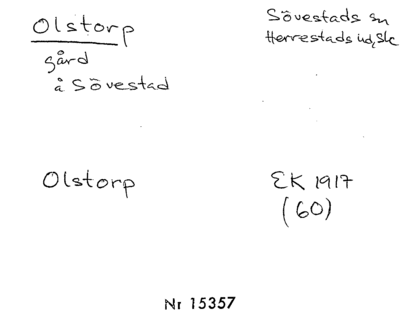 Olstorp
gård
å Sövestad
Sövestads sn
Herrestads hd, Sk
Olstorp
EK 1917
(60)
Nr 15357